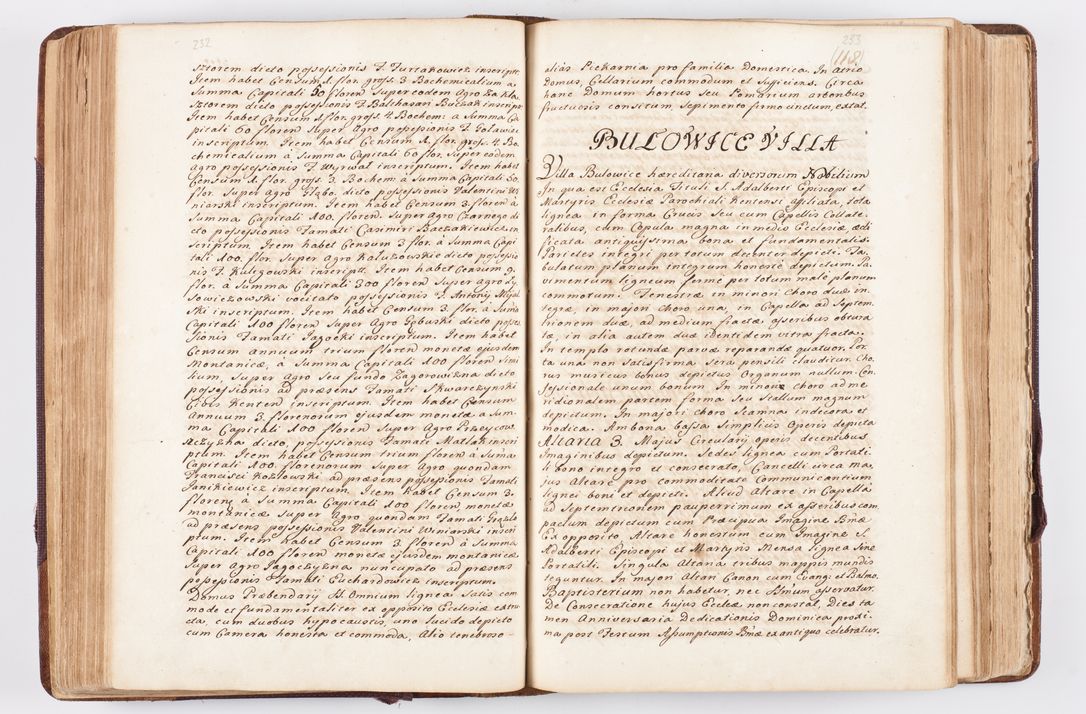 232
sztorem dicto possessionis F. Jurzakowicz inscript.
Item habet Censum 1. flor. gross. 3 Bochemicalium a
Summa Capitali 50 floren super eodem Agro Zakla
sztorem dicto possessionis F. Balthasari Buczak inscript
Item habet Censum 1. flor. gross. 4. Bochem: a Summa Ca
pitali 60 floren Super Agro possessionis F.
inscriptum. Item habet Censum 1. flor. gross. 4. Bo
chemicalium à Summa Capitali 60 flor. Super eadem
agro possessionis F. Wyrwał inscriptum. Item habet
Censum 1. flor. gros. 3. Bochem: a Summa Capitali 50.
flor. Super Agro dicto possessionis Valentini Wi
niarski inscriptum. Item habet Censum 3. floren à
Summa Capitali 100. floren. Super Agro Czarnego di
cto possessionis Famati Casimiri Baczakiewicz in
scriptum. Item habet Censum 3 flor. à Summa Capi
tali 100. flor Super Agro Kaluzowskie dicto possessio
nis F. Kuligowski inscript. Item habet Censum 9.
flor. à Summa Capitali 300 floren Super agro Ły
sowiczowski vocitato possessionis F. Antony
ski inscriptum. Item habet Censum 3. flor. à Suma
Capitali 100 floren Super Agro Gębuski dicto posses
sionis Famati Jagocki inscriptum. Item habet
Censum annuum trium floren monetæ ejusdem
Montanicæ, à Summa Capitali 100 floren Simi
lium, Super Agro Seu fundo Zagorowizna dicto
possessionis ad præsens Famati Skwarczynski
Civis Kenten inscriptum. Item habet Censum
Annuum 3. florenorum ejusdem monetæ a Sum
ma Capitali 100 floren Super Agro Przetycow
szczyzna dicto, possessionis Famati Matlak inscri
ptum. Item habet Censum trium floren à Suma
Capitali 100. florenorum Super Agro quondam
Francisci Kozłowski ad præsens possessionis Famati
Janikiewicz inscriptum. Item habet Censum 3.
floreng à Summa Capitali 100 floren, monetæ
montanicæ Super Agro quondam Famati
ad præsens possessionis Valentini Winiarski inscri
ptum. Item habet Censum 3 floren à Summa
Capitali 100 floren monetæ ejusdem montanicæ
Super Agro Jagoczyzna nuncupato ad præsens
possessionis Famati Euchardowicz inscriptum.
Domus Præbendarij SS. Omnium lignea Satis com
mode et fundamentaliter ex opposito Ecclesiæ extru
cta, cum duobus hypocaustis, uno lucido depicto
cum Camera honesta et commoda, Alio tenebroso–
233
(118)
aliàs Piekarnia pro familia Domestica. In atrio
Domus, Cellarium commodum et Sufficiens. Circa
hanc Domum hortus seu Pomarium arboribus
fructuosis consitum Sepimento firmo unctum, extat.
BULOWICE VILLA
Villa Bulowice hæreditaria diversorum Nobilium
In qua est Ecclesia Tituli S. Adalberti Episcopi et
Martyris Ecclesiæ Parochiali Kentensi affiliata, tota
lignea in forma Crucis Seu cum Capellis Collate
ralibus, cum Copula magna in medio Ecclesiæ ædi
ficata antiquissima bona et fundamentalis.
Parietes integri per totum decenter depicti. Ta
bulatum planum integrum honestè depictum. Pa
vimentum ligneum fermè per totum male planum
commotum. Fenestræ in minori Choro duæ in
tegræ, in majori choro una, in Capella ad Septem
trionem duæ, ad medium fractæ asseribus obtura
tæ, in alia autem duæ itidem vitra fracta.
In templo rotundæ parvæ reparandæ quatuor. Por
ta una non satis firma, Sera pensili clauditur. Cho
rus musicus bonus depictus Organum nullum. Con
fessionale unum bonum. In minori choro ad me
ridionalem partem forma Seu Stallum magnum
depictum. In majori choro Scamna indecora et
modica. Ambona bassa Simplicis Operis depicta
Altaria 3. Majus Circularij operis decentibus
Imaginibus depictum. Sedes lignea cum Portati
li bono integro et consecrato, Cancelli circa ma
jus Altare pro commoditate Communicantium
lignei boni et depicti. Aliud Altare in Capella
ad Septemtrionem pauperrimum ex asseribus com
pactum depictum cum Præcipua Imagine Bmæ
Ex opposito Altare honestum cum Imagine S.
Adalberti Episcopi et Martyris Mensa lignea Sine
Portatili. Singula Altaria tribus mappis mundis
teguntur. In majori Altari Canon cum Evang. et Psalmo.
Baptisterium non habetur, nec Smum asservatur.
De Consecratione hujus Eccleæ non constat, Dies ta
men Anniversaria Dedicationis Dominica proxi
ma post Festum Assumptionis Bmæ ex antiquo celebratur.